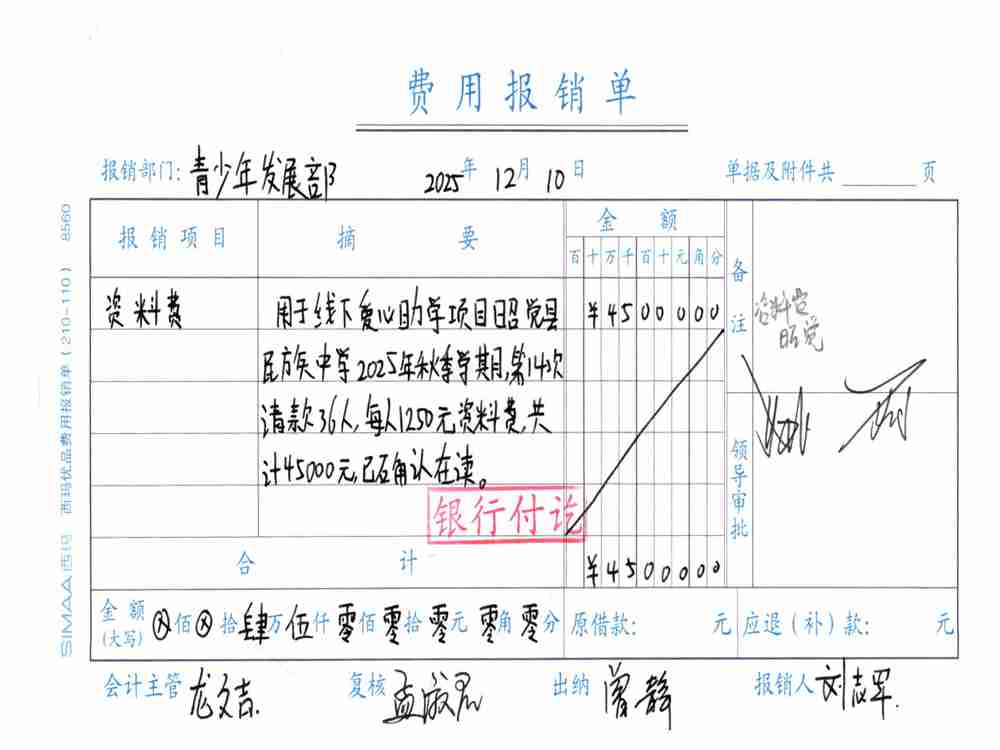 费用报销单
报销部门: 青少年发展部 2025年 12月 10日 单据及附件共 页
报销项目 摘要 金额 备注
百十万千百十元角分
资料费 用于线下爱心助学项目昭觉县 ¥4500000
民族中学2025年秋季学期,第14次
请款36人,每人1250元资料费,共
计45000元,已确认在读。
资料费
昭觉
领导审批
银行付讫
合计 ¥4500000
金额(大写) ⊗佰⊗拾肆万伍仟零佰零拾零元零角零分 原借款: 元 应退(补)款: 元
会计主管 龙文吉 复核 孟淑君 出纳 曾静 报销人 刘志军
SIMAA西玛 西玛优品费用报销单(210-110) 8560